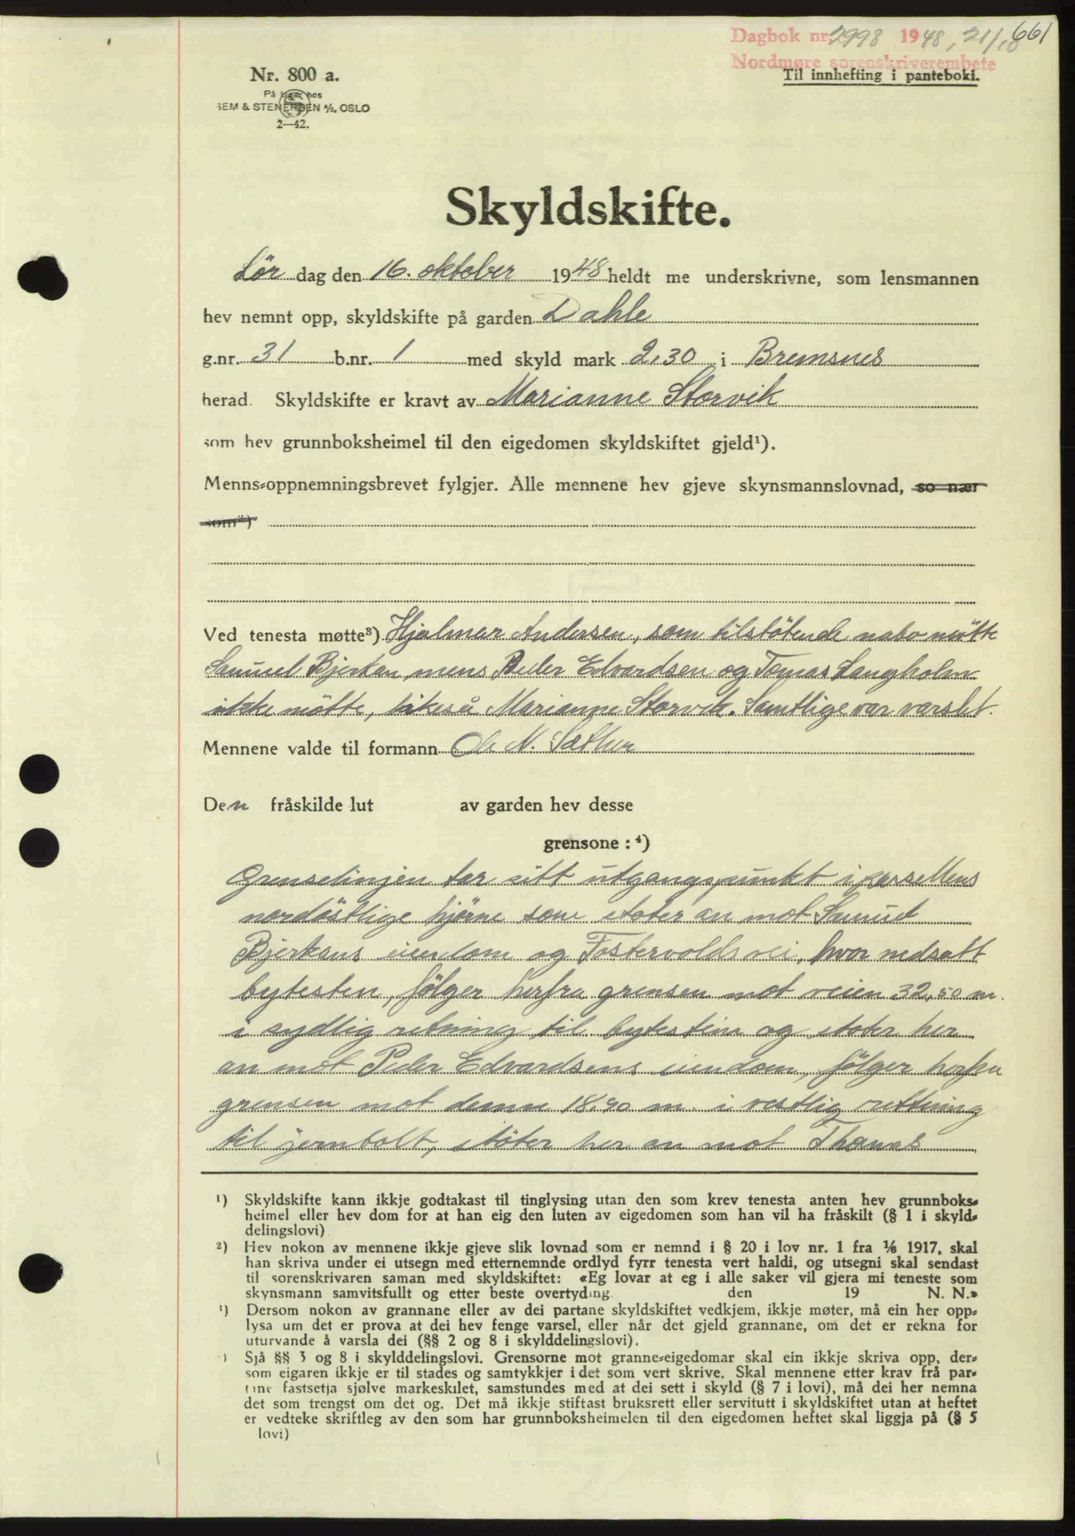 Dagbok nr. 2998 1948, 21/10 661
Nordmøre sorenskriverembete
Til innhefting i panteboki.
Nr. 800 a.
På lager hos
SEM & STENERSEN A/S, OSLO
2—42.
Skyldskifte.
Lør dag den 16. oktober 1948 heldt me underskrivne, som lensmannen
hev nemnt opp, skyldskifte på garden Dahle
g.nr. 31 b.nr. 1 med skyld mark 2,30 i Bremsnes
herad. Skyldskifte er kravt av Marianne Storvik
som hev grunnboksheimel til den eigedomen skyldskiftet gjeld¹).
Menns-oppnemningsbrevet fylgjer. Alle mennene hev gjeve skynsmannslovnad, so nær
som²)
Ved tenesta møtte³) Hjalmar Andersen, som tilstötende nabo mötte
Samuel Bjerkan, mens Peder Edvardsen og Tomas Langholm
ikke mötte, likeså Marianne Storvik. Samtlige var varslet.
Mennene valde til formann Ole N. Sæther
Den fråskilde lut av garden hev desse
grensone : ⁴)
Grenselinjen tar sitt utgangspunkt i parsellens
nordöstlige hjörne som stöter an mot Samuel
Bjerkans eiendom og Fostervolds vei, hvor nedsatt
bytesten, fölger herfra grensen mot veien 32,50 m.
i sydlig retning til bytestein og stöter her
an mot Peder Edvardsens eiendom, fölger herfra
grensen mot denne 18,90 m. i vestlig rettning
til jernbolt, stöter her an mot Thomas
¹) Skyldskifte kann ikkje godtakast til tinglysing utan den som krev tenesta anten hev grunnboks-
heimel eller hev dom for at han eig den luten av eigedomen som han vil ha fråskilt (§ 1 i skyld-
delingslovi)
²) Hev nokon av mennene ikkje gjeve slik lovnad som er nemnd i § 20 i lov nr. 1 fra 1/6 1917, skal
han skriva under ei utsegn med etternemnde ordlyd fyrr tenesta vert haldi, og utsegni skal sendast
til sorenskrivaren saman med skyldskiftet: «Eg lovar at eg i alle saker vil gjera mi teneste som
skynsmann samvitsfullt og etter beste overtyding. den 19 N. N.»
³) Dersom nokon av grannane eller av dei partane skyldskiftet vedkjem, ikkje møter, må ein her opp-
lysa um det er prova at dei hev fenge varsel, eller når det gjeld grannane, om det er rekna for
uturvande å varsla dei (§§ 2 og 8 i skylddelingslovi).
) Sjå §§ 3 og 8 i skylddelingslovi. Grensorne mot granne-eigedomar skal ein ikkje skriva opp, der-
som eigaren ikkje er til stades og samtykkjer i det som vert skrive. Skal mennene etter krav frå par-
tane fastsetja sjølve markeskilet, samstundes med at dei sett i skyld (§ 7 i lovi), må dei her nemna
det som trengst om det og. Det må ikkje stiftast bruksrett eller servitutt i skyldskiftet utan at heftet
er vedteke skriftleg av den som har grunnboksheimelen til den eigedomen heftet skal liggja på (§ 5
lovi)